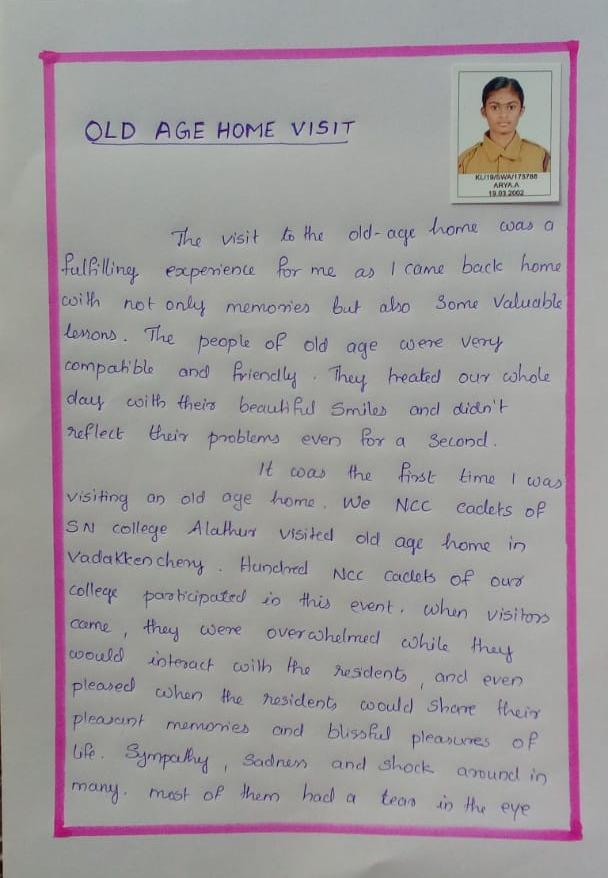 OLD AGE HOME VISIT
KL/19/SWA/173788
ARYA.A
19.03.2002
The visit to the old-age home was a
fulfilling experience for me as I came back home
with not only memories but also Some Valuable
lessons. The people of old age were very
compatible and friendly. They treated our whole
day with their beautiful Smiles and didn't
reflect their problems even for a Second.
It was the first time I was
visiting an old age home. We NCC cadets of
SN college Alathur visited old age home in
Vadakkenchery. Hundred Ncc cadets of our
college participated in this event. When visitors
came, they were overwhelmed while they
would interact with the residents, and even
pleased when the residents would Share their
pleasant memories and blissful pleasures of
life. Sympathy, Sadness and Shock around in
many. most of them had a tear in the eye